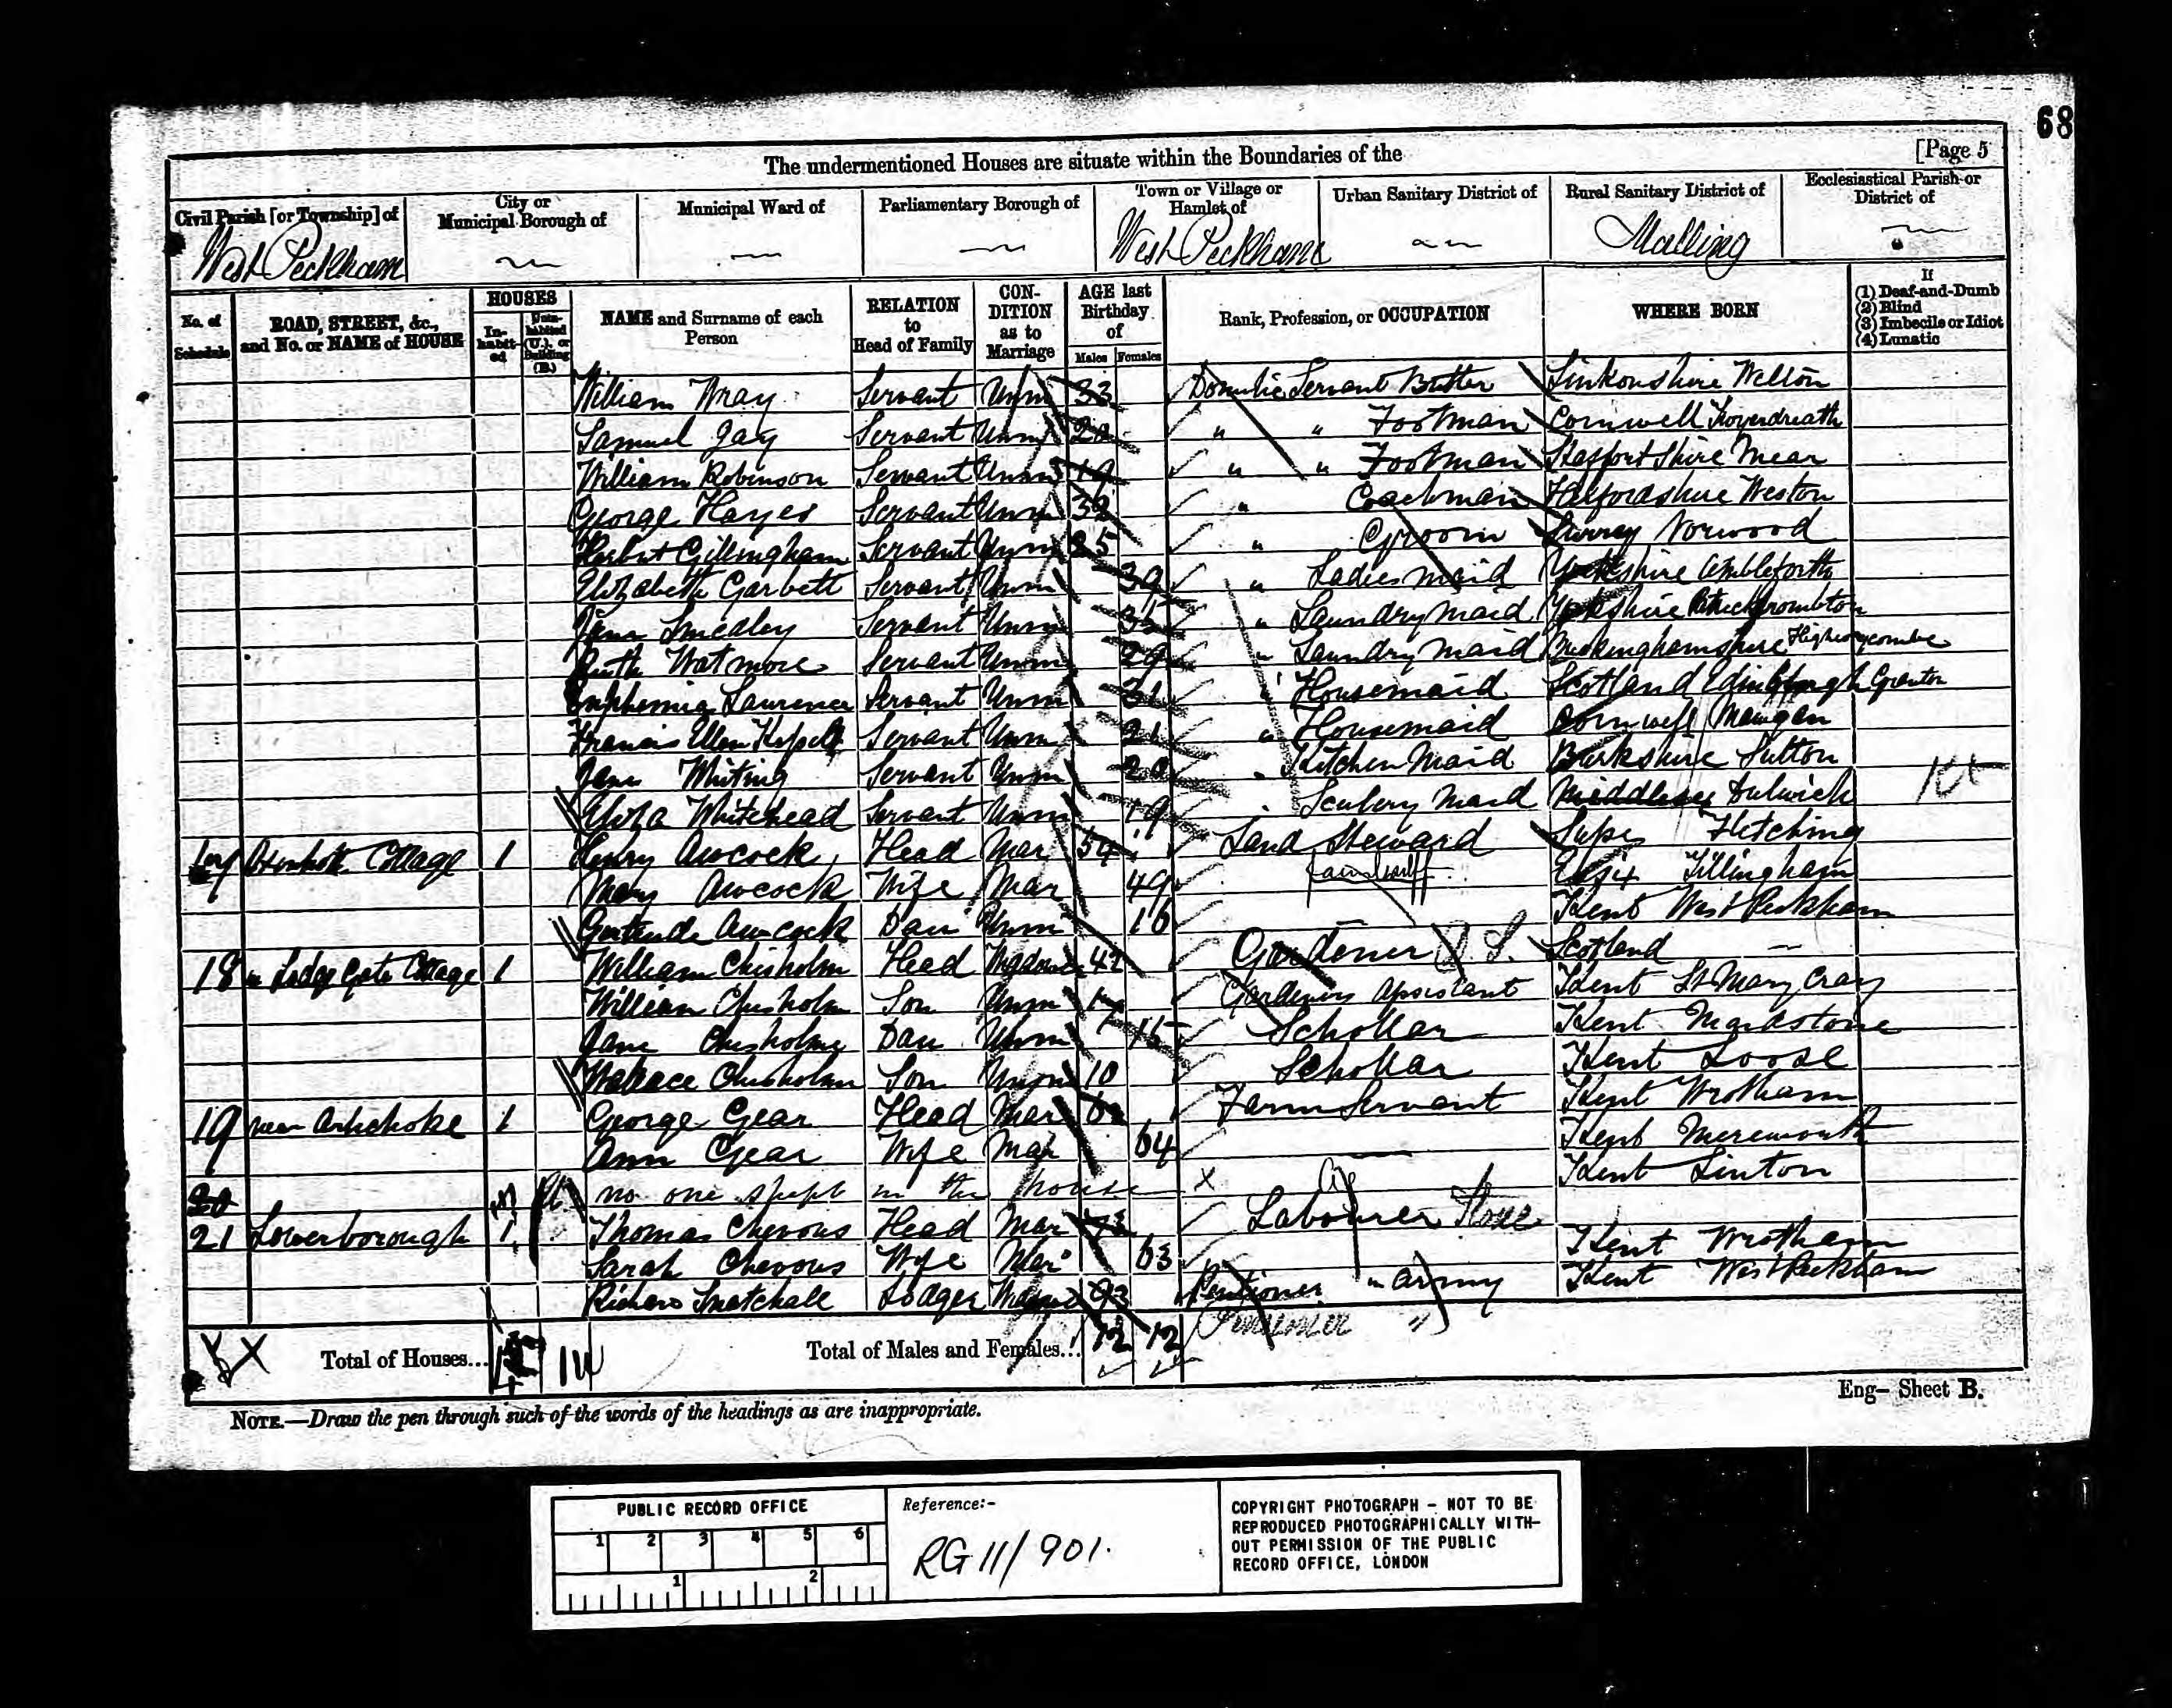 68
The undermentioned Houses are situate within the Boundaries of the [Page 5
Civil Parish [or Township] of
City or Municipal Borough of
Municipal Ward of
Parliamentary Borough of
Town or Village or Hamlet of
Urban Sanitary District of
Rural Sanitary District of
Ecclesiastical Parish or District of
West Peckham
West Peckham
Malling
No. of Schedule
ROAD, STREET, &c., and No. or NAME of HOUSE
HOUSES
In-habit-ed
Unin-habited (U.), or Building (B.)
NAME and Surname of each Person
RELATION to Head of Family
CON-DITION as to Marriage
AGE last Birthday of
Males Females
Rank, Profession, or OCCUPATION
WHERE BORN
If
(1) Deaf-and-Dumb
(2) Blind
(3) Imbecile or Idiot
(4) Lunatic
William Wray Servant Unm 33 Servant Butler Linkonshire Welton
Samuel Jay Servant Unm 20 " " Footman Cornwell
William Robinson Servant Unm 19 " " Footman Mear
George Hayes Servant Unm " Coachman Weston
Herbert Gillingham Servant Unm 25 " Groom Surrey Norwood
Elizabeth Garbett Servant Unm 39 " Ladies maid Yorkshire Ambleforth
Jane Smedley Servant Unm 35 " Laundry maid Yorkshire
Ruth Watmore Servant Unm 29 " Laundry maid Buckinghamshire
Euphemia Lawrence Servant Unm 31 " Housemaid Scotland Edinburgh Granton
Francis Ellen Servant Unm 21 " Housemaid Cornwell Mawgan
Jane Whiting Servant Unm 20 " Kitchen Maid Berkshire Sutton
Eliza Whitehead Servant Unm 19 " Maid Middlesex Dulwich
Cottage 1 Henry Awcock Head Mar 54 Land Steward Fletching
Mary Awcock Wife Mar 49 Essex Tillingham
Gertrude Awcock Dau Unm 16 Kent West Peckham
18 Lodge Gate Cottage 1 William Chisholm Head 42 Gardener Scotland
William Chisholm Son Unm Gardeners Assistant Kent St Mary Cray
Jane Chisholm Dau Unm 15 Schollar Kent Maidstone
Wallace Chisholm Son Unm 10 Schollar Kent Loose
19 near 1 George Gear Head Mar Farm Servant Kent Wrotham
Ann Gear Wife Mar 64 Kent Mereworth
20 no one slept in the house X Kent Linton
21 Lowerborough 1 Thomas Chevous Head Mar 73 Labourer
Sarah Chevous Wife Mar 63 Kent Wrotham
Richard Lodger Pentioner in Army Kent West Peckham
Total of Houses...
Total of Males and Females... 12 12
Eng— Sheet B.
NOTE.—Draw the pen through such of the words of the headings as are inappropriate.
PUBLIC RECORD OFFICE
1 2 3 4 5 6
1 2
Reference:-
RG 11/901.
COPYRIGHT PHOTOGRAPH – NOT TO BE
REPRODUCED PHOTOGRAPHICALLY WITH-
OUT PERMISSION OF THE PUBLIC
RECORD OFFICE, LONDON